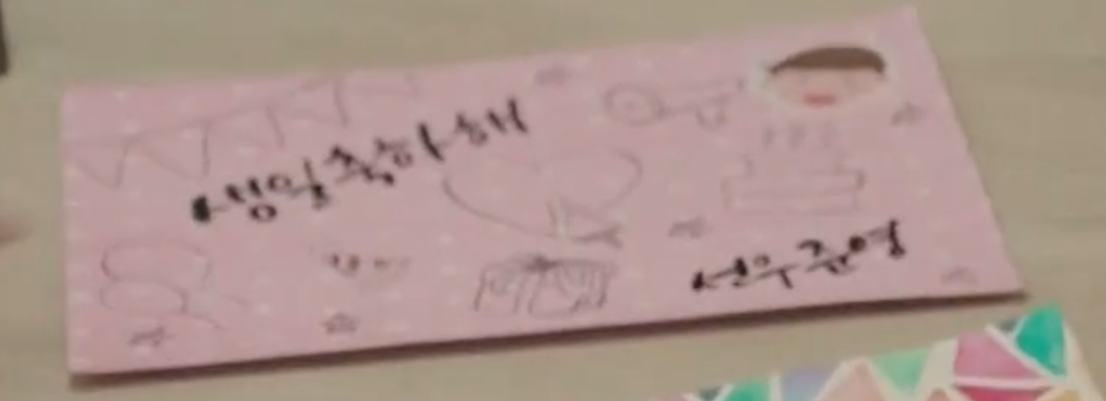 생일축하해
선우준영